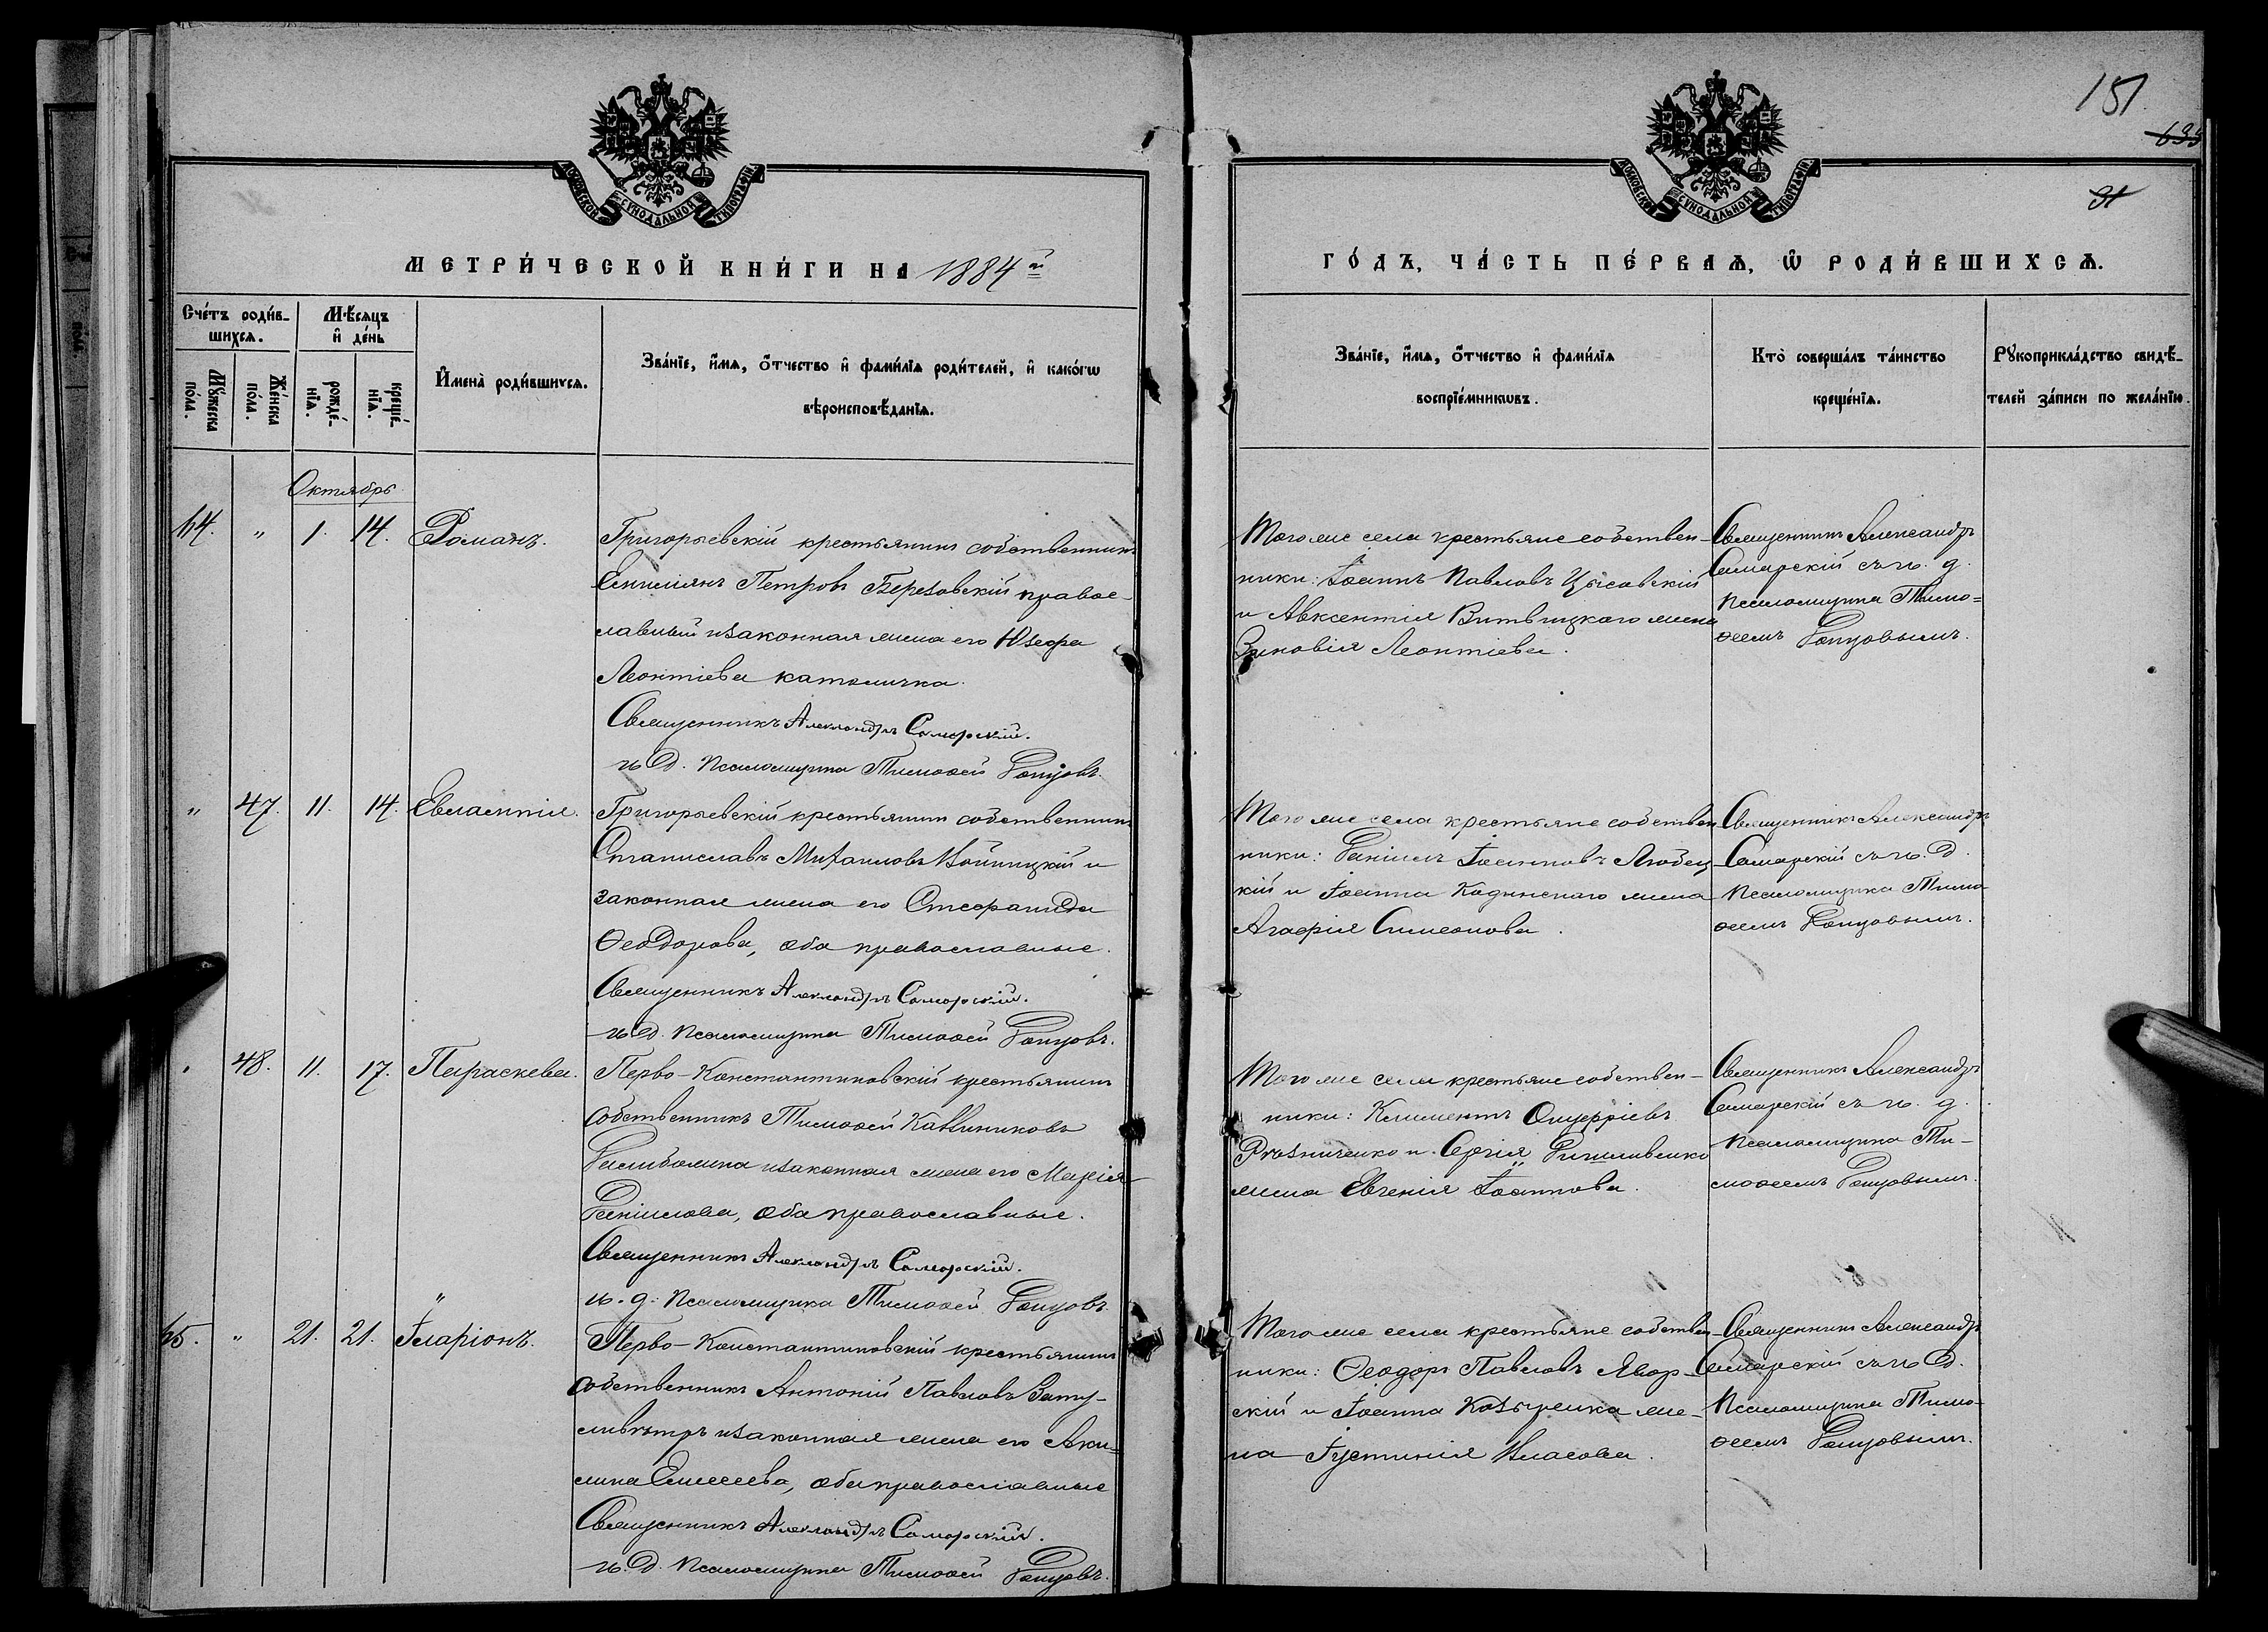 151
633
91
МОСКОВСКОЙ СУНОДАЛЬНОЙ ТИПОГРАФІИ
МОСКОВСКОЙ СУНОДАЛЬНОЙ ТИПОГРАФІИ
МЕТРИ́ЧЕСКОЙ КНИ́ГИ НА 1884й
ГО́ДЪ, ЧА́СТЬ ПЕ́РВАѦ, Ѡ РОДИ́ВШИХСѦ.
Сче́тъ роди́в-
шихсѧ.
Мꙋ́жеска
по́ла.
Же́нска
по́ла.
Мѣ́сяцъ
и҆ де́нь
рожде́-
нїѧ.
креще́-
нїѧ.
И҆мена̀ роди́вшихсѧ.
Зва́нїе, и҆́мѧ, ѻ҆́тчество и҆ фами́лїѧ роди́телей, и҆ како́гѡ
вѣроисповѣ́данїѧ.
Зва́нїе, и҆́мѧ, ѻ҆́тчество и҆ фами́лїѧ
воспрїе́мникѡвъ.
Кто̀ соверша́лъ та́инство
креще́нїѧ.
Рꙋкоприкла́дство свидѣ́-
телей за́писи по жела́нїю.
Октябрь
64. „ 1. 14. Романъ.
Григорьевскій крестьянинъ собственникъ
Емиліянъ Петровъ Березовскій правос-
лавный и законная жена его Юзефа
Леонтіева католичка.
Священникъ Александръ Самарскій.
и. д. Псаломщика Тимоѳей
Того же села крестьяне собствен-
ники: Іоаннъ Павловъ Цысовскій
и Авксентія Витвицкого жена
Зиновія Леонтіева.
Священникъ Александръ
Самарскій съ и. д.
Псаломщика Тимо=
ѳеемъ
„ 47. 11. 14. Евлампія.
Григорьевскій крестьянинъ собственникъ
Станиславъ Михаиловъ Войницкій и
законная жена его Стефанида
Ѳеодорова, оба православные.
Священникъ Александръ Самарскій.
и. д. Псаломщика Тимоѳей
Того же села крестьяне собствен
ники: Даніилъ Іоанновъ Любец-
кій и Іоанна Кодинскаго жена
Агафія Симеонова.
Священникъ Александръ
Самарскій съ и. д.
Псаломщика Тимо-
ѳеемъ
„ 48. 11. 17. Параскева.
Перво-Константиновскій крестьянинъ
собственникъ Тимоѳей Каллиниковъ
и законная жена его Марія
Даніилова, оба православные.
Священникъ Александръ Самарскій.
и. д. Псаломщика Тимоѳей
Того же села крестьяне собствен-
ники: Климентъ Онуфріевъ
и Сергія
жена Евгенія Іоаннова.
Священникъ Александръ
Самарскій съ и. д.
Псаломщика Ти-
моѳеемъ
65. „ 21. 21. Іларіонъ.
Перво-Константиновскій крестьянинъ
собственникъ Антоній Павловъ
и законная жена его Аки=
лина Елисеева, оба православные
Священникъ Александръ Самарскій.
и. д. Псаломщика Тимоѳей
Того же села крестьяне собствен-
ники: Ѳеодоръ Павловъ Явор-
скій и Іоанна Козыренка же-
на Іустинія Власова.
Священникъ Александръ
Самарскій съ и. д.
Псаломщика Тимо-
ѳеемъ